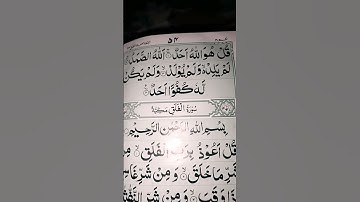 ۵۴
قُلْ هُوَ اللّٰهُ اَحَدٌ ۚ اَللّٰهُ الصَّمَدُ ۚ
لَمْ يَلِدْ ۙ وَلَمْ يُوْلَدْ ۙ وَلَمْ يَكُنْ
لَّهٗ كُفُوًا اَحَدٌ
سُوْرَةُ الْفَلَقِ مَكِّيَّةٌ
بِسْمِ اللّٰهِ الرَّحْمٰنِ الرَّحِيْمِ
قُلْ اَعُوْذُ بِرَبِّ الْفَلَقِ ۙ
شَرِّ مَا خَلَقَ ۙ وَمِنْ شَرِّ غَاسِ
ذَا وَقَبَ ۙ وَمِنْ شَرِّ النَّفّٰثٰ